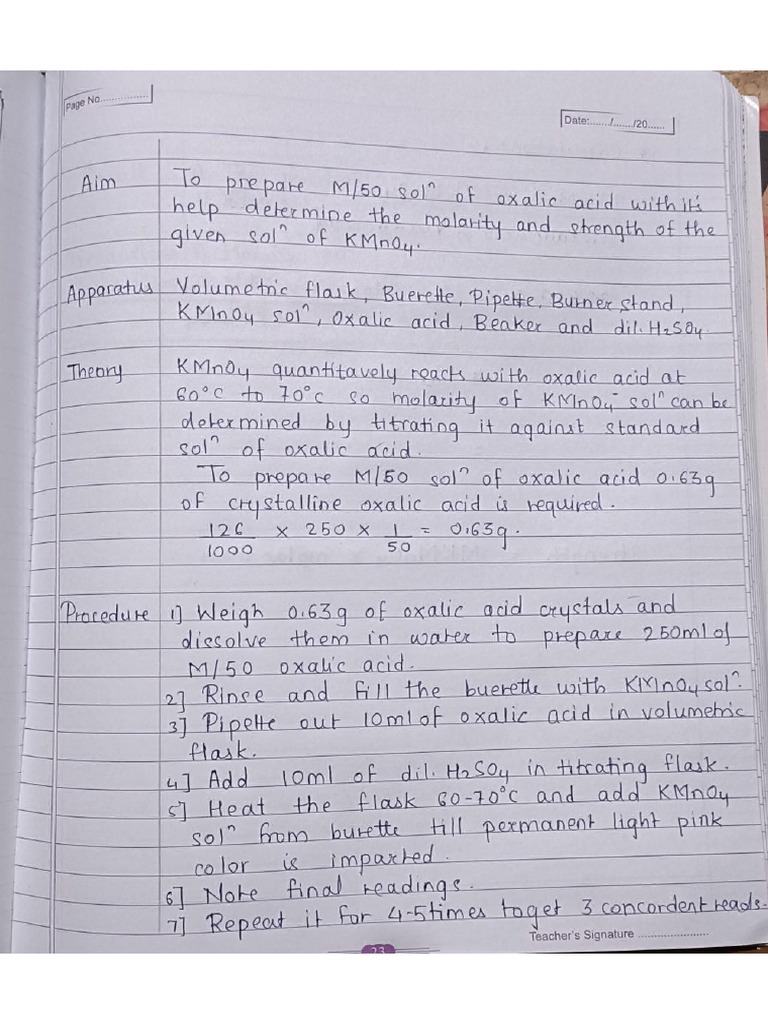 Page No................
Date:......./......./20......
Aim To prepare M/50 solⁿ of oxalic acid with it's
help determine the molarity and strength of the
given solⁿ of KMnO₄.
Apparatus Volumetric flask, Buerette, Pipette, Burner stand,
KMnO₄ solⁿ, Oxalic acid, Beaker and dil. H₂SO₄.
Theory KMnO₄ quantitavely reacts with oxalic acid at
60°C to 70°C so molarity of KMnO₄⁻ solⁿ can be
determined by titrating it against standard
solⁿ of oxalic acid.
To prepare M/50 solⁿ of oxalic acid 0.63g
of crystalline oxalic acid is required.
126/1000 × 250 × 1/50 = 0.63g.
Procedure 1] Weigh 0.63g of oxalic acid crystals and
dissolve them in water to prepare 250ml of
M/50 oxalic acid.
2] Rinse and fill the buerette with KMnO₄ solⁿ.
3] Pipette out 10ml of oxalic acid in volumetric
flask.
4] Add 10ml of dil. H₂SO₄ in titrating flask.
5] Heat the flask 60-70°C and add KMnO₄
solⁿ from burette till permanent light pink
color is imparted.
6] Note final readings.
7] Repeat it for 4-5times to get 3 concordent reads.
Teacher's Signature ........................
23